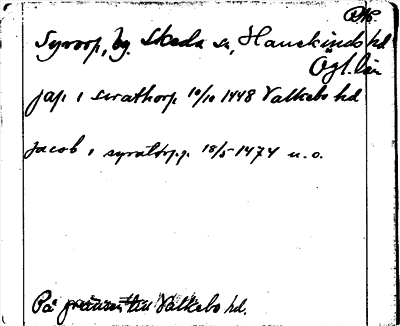 Syrorp, by. Skeda sn, Hanekinds hd
Ögl. län
jap i swrathorp 10/10 1448 Valkebo hd
jacob i syratorp 18/5 1474 u. o.
På gränsen till Valkebo hd.